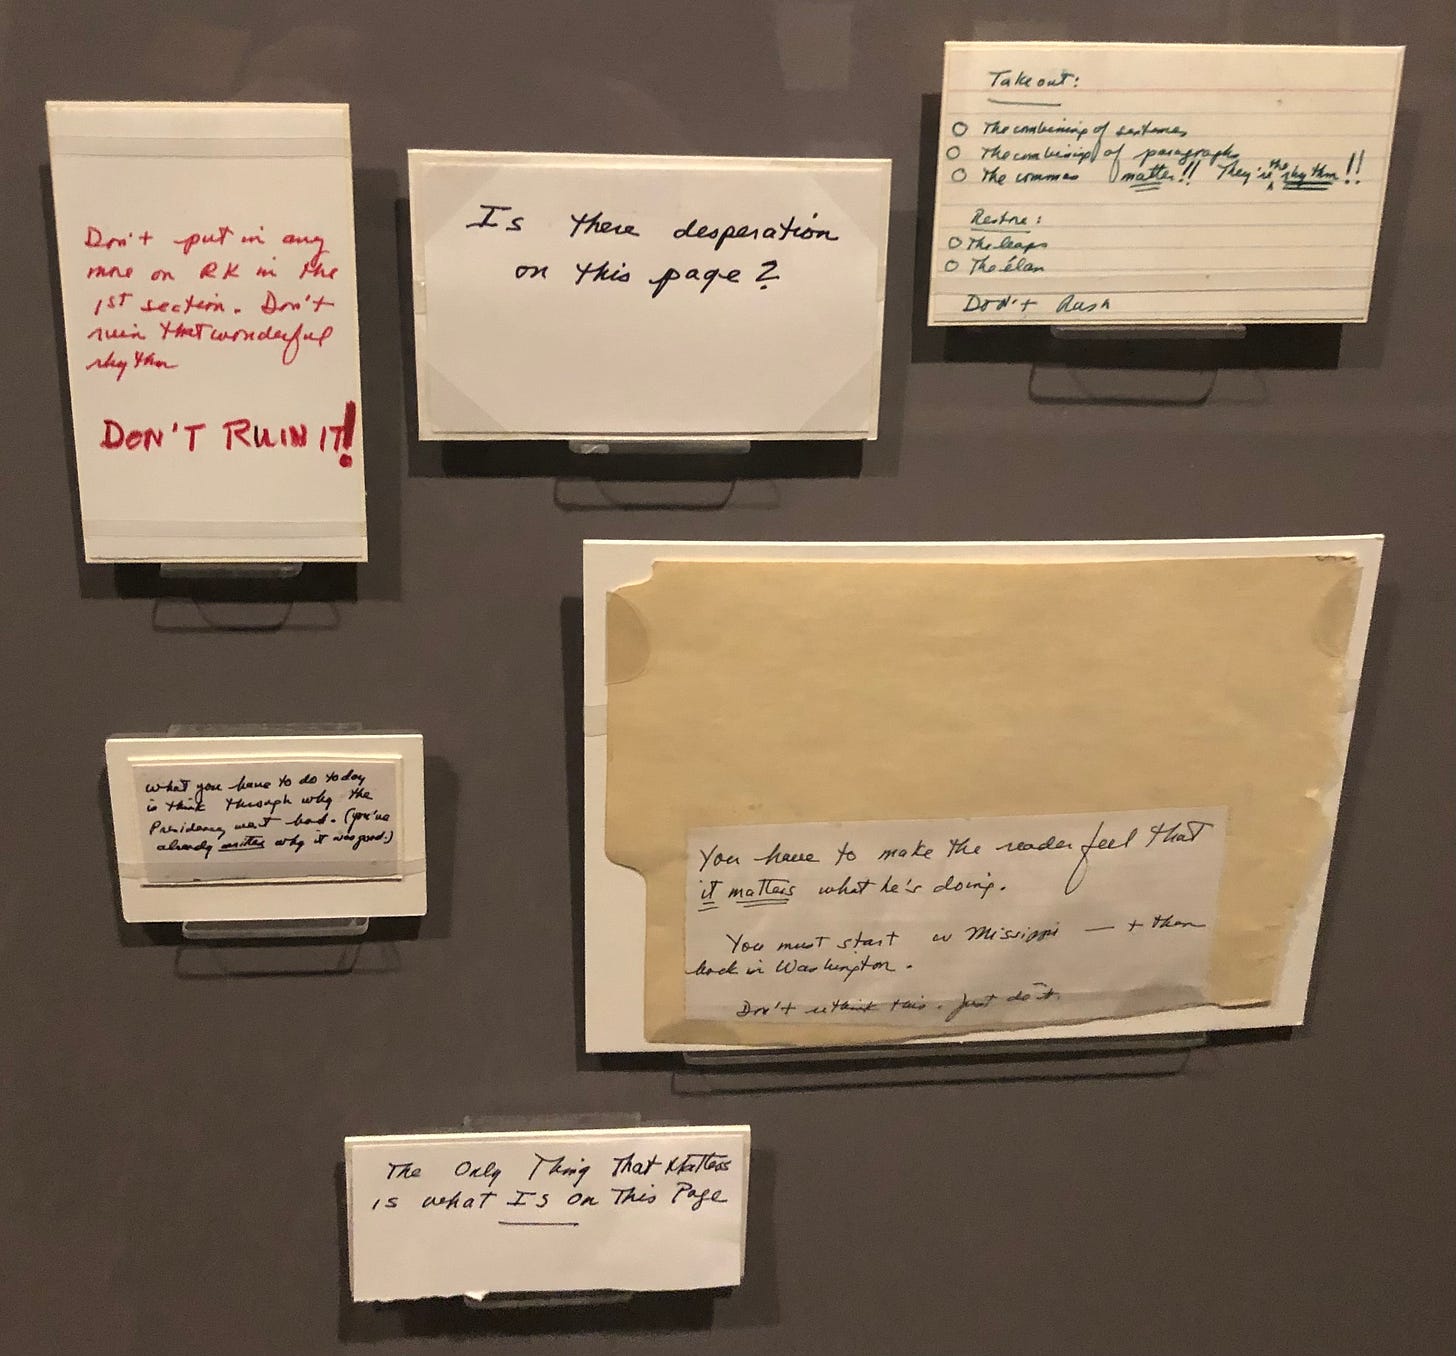 Don't put in any
more on RK in the
1st section. Don't
ruin that wonderful
rhythm
DON'T RUIN IT!
Is there desperation
on this page?
Take out:
O The combining of sentences
O The combining of paragraphs
O The commas matter!! They're the rhythm!!
Restore:
O The leaps
O The élan
Don't Rush
What you have to do today
is think through why the
Presidency went bad. (You've
already written why it was good.)
You have to make the reader feel that
it matters what he's doing.
You must start w Missippi — + then
back in Washington.
Don't rethink this. Just do it.
The Only Thing That Matters
is what IS on This Page